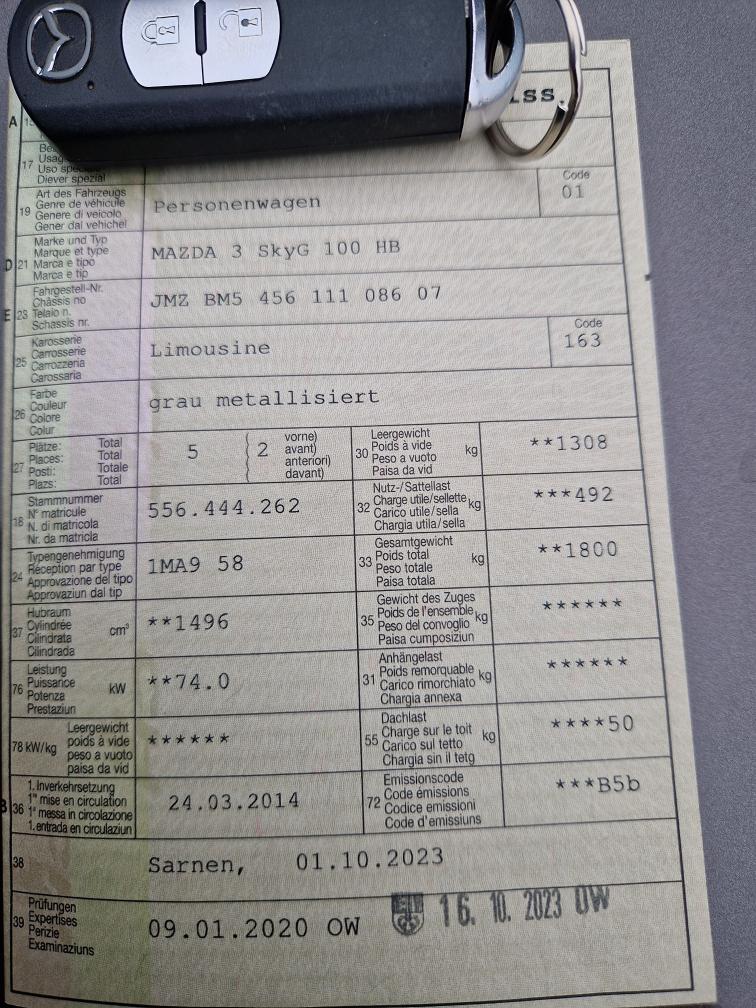 ıss.
A 15
17
Usag
Uso spe
Diever spezial
19 Art des Fahrzeugs
Genre de véhicule
Genere di veicolo
Gener dal vehichel
Personenwagen
Code
01
D 21 Marke und Typ
Marque et type
Marca e tipo
Marca e tip
MAZDA 3 SkyG 100 HB
E 23 Fahrgestell-Nr.
Châssis no
Telaio n.
Schassis nr.
JMZ BM5 456 111 086 07
25 Karosserie
Carrosserie
Carrozzeria
Carossaria
Limousine
Code
163
26 Farbe
Couleur
Colore
Colur
grau metallisiert
27 Plätze: Total
Places: Total
Posti: Totale
Plazs: Total
5
2
vorne)
avant)
anteriori)
davant)
30 Leergewicht
Poids à vide
Peso a vuoto
Paisa da vid
kg
**1308
18 Stammnummer
N° matricule
N. di matricola
Nr. da matricla
556.444.262
32 Nutz-/Sattellast
Charge utile/sellette
Carico utile/sella
Chargia utila/sella
kg
***492
24 Typengenehmigung
Réception par type
Approvazione del tipo
Approvaziun dal tip
1MA9 58
33 Gesamtgewicht
Poids total
Peso totale
Paisa totala
kg
**1800
37 Hubraum
Cylindrée
Cilindrata
Cilindrada
cm³
**1496
35 Gewicht des Zuges
Poids de l'ensemble
Peso del convoglio
Paisa cumposiziun
kg
******
76 Leistung
Puissance
Potenza
Prestaziun
kW
**74.0
31 Anhängelast
Poids remorquable
Carico rimorchiato
Chargia annexa
kg
******
78 kW/kg Leergewicht
poids à vide
peso a vuoto
paisa da vid
******
55 Dachlast
Charge sur le toit
Carico sul tetto
Chargia sin il tetg
kg
****50
B 36 1. Inverkehrsetzung
1re mise en circulation
1a messa in circolazione
1. entrada en circulaziun
24.03.2014
72 Emissionscode
Code émissions
Codice emissioni
Code d'emissiuns
***B5b
38
Sarnen, 01.10.2023
39 Prüfungen
Expertises
Perizie
Examinaziuns
09.01.2020 OW
16. 10. 2023 OW